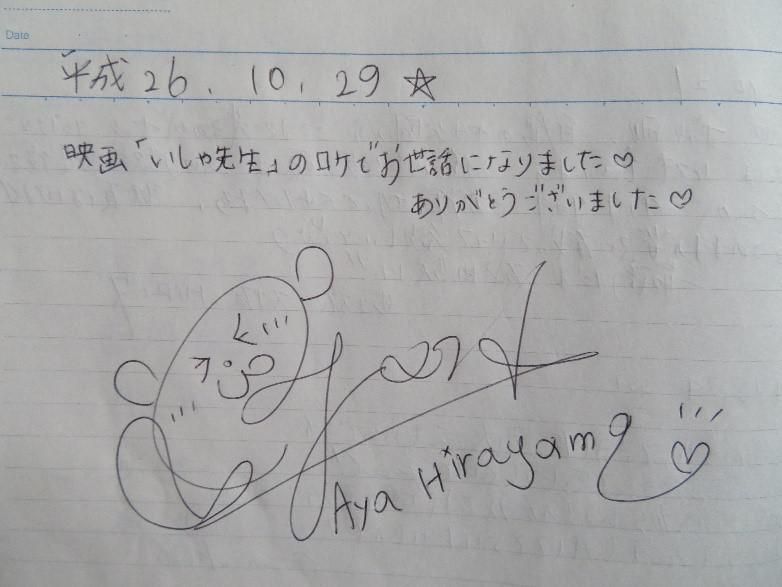 Date
平成26.10.29☆
映画「いしゃ先生」のロケでお世話になりました♡
ありがとうございました♡
Aya Hirayama♡